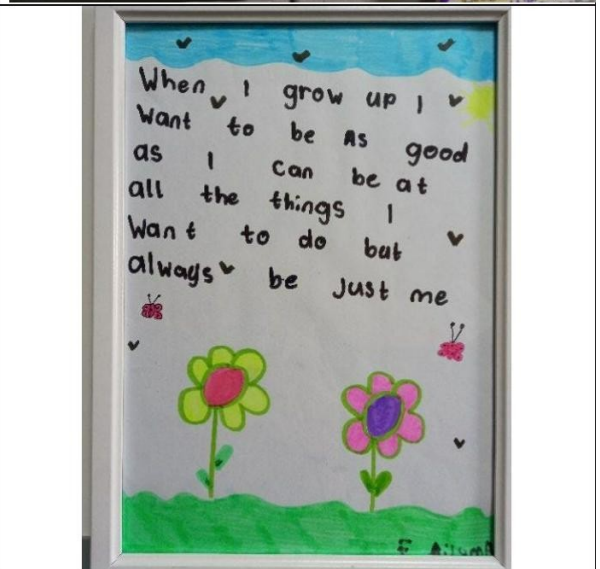 When I grow up I
Want to be As good
as I can be at
all the things I
Want to do but
always be just me